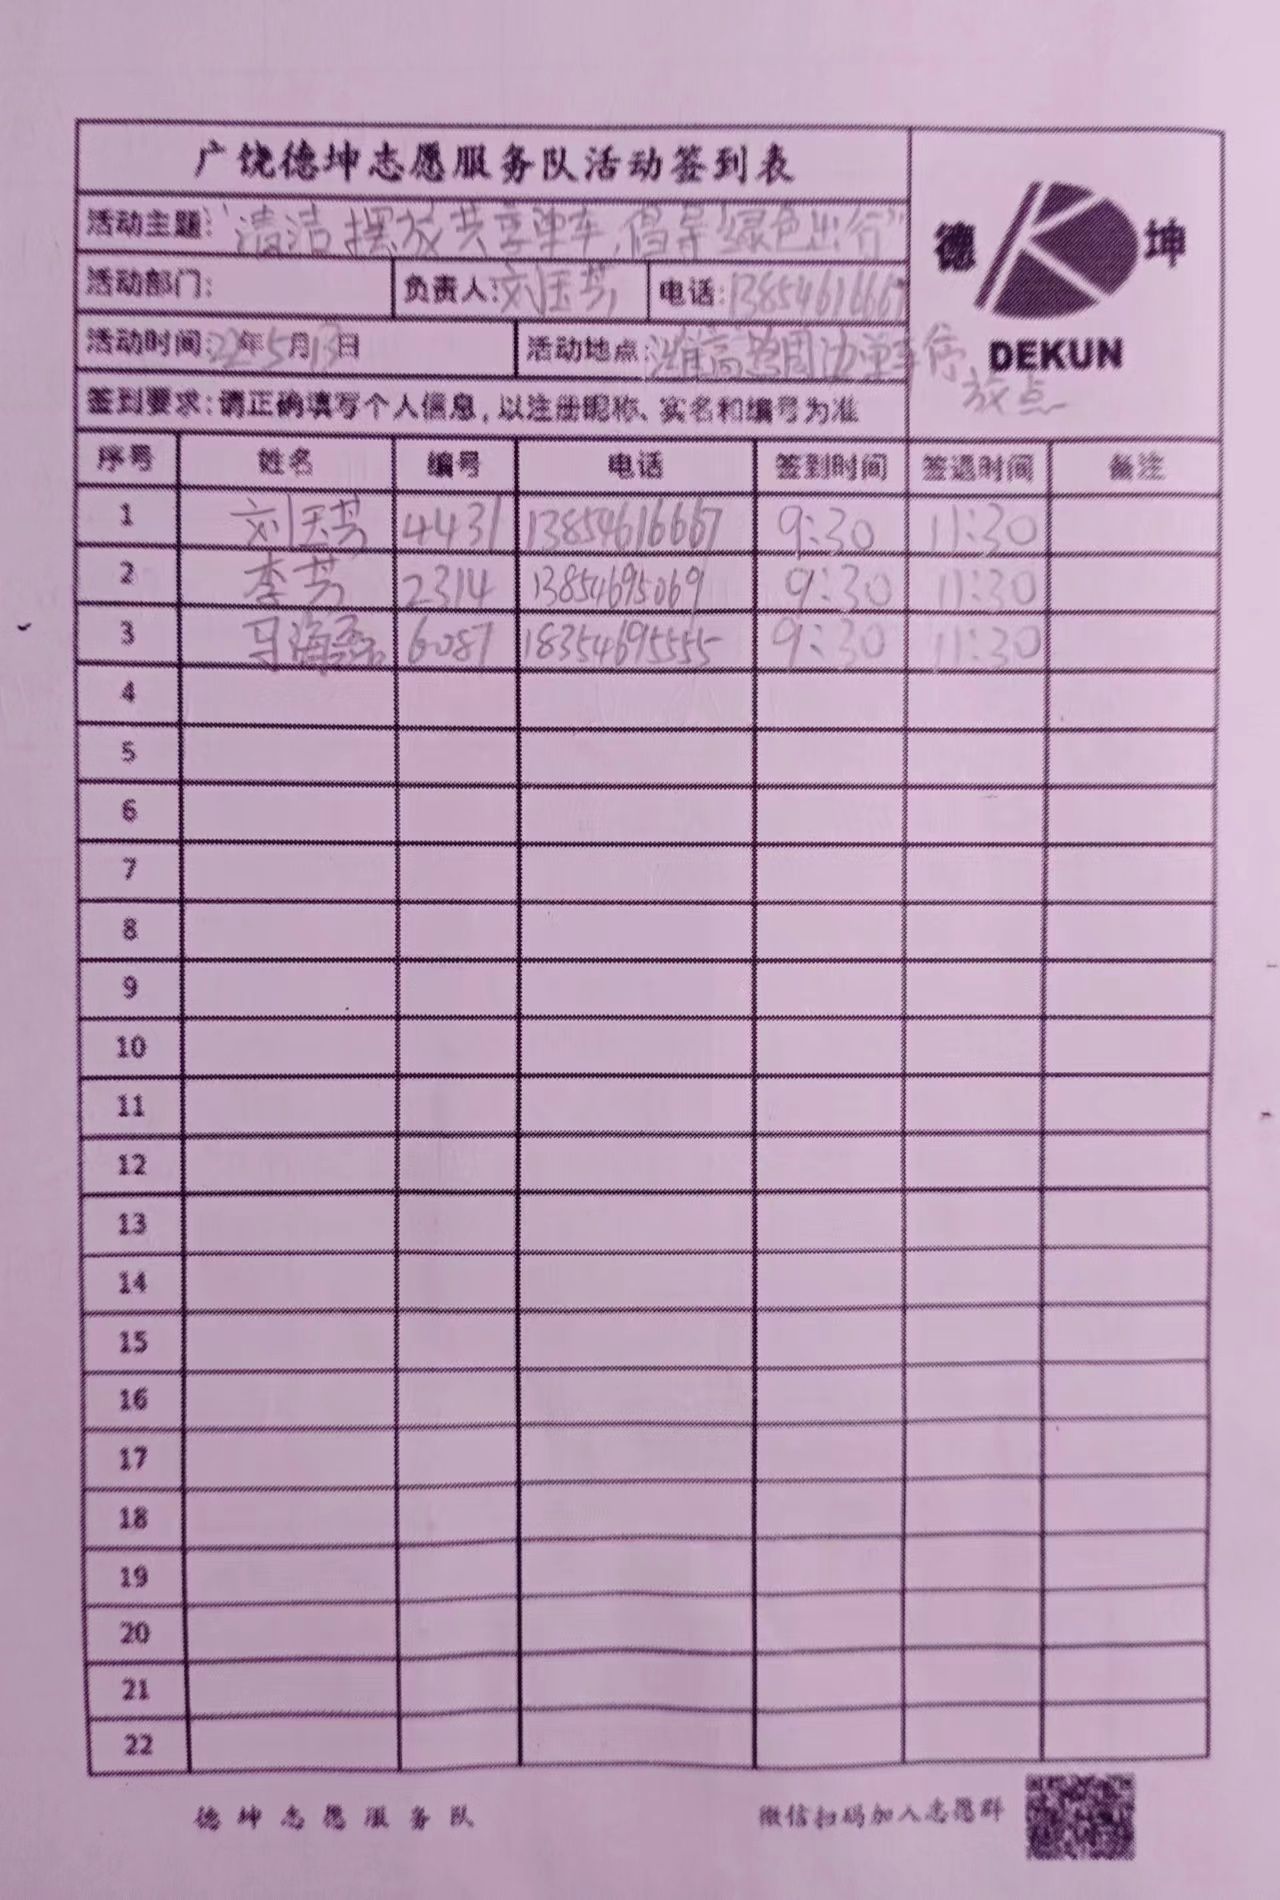 广饶德坤志愿服务队活动签到表
活动主题:"清洁摆放共享单车,倡导"绿色出行"
德 坤
DEKUN
活动部门: 负责人:刘玉芳 电话:13854616667
活动时间:22年5月13日 活动地点:潍高路周边单车停放点
签到要求:请正确填写个人信息,以注册昵称、实名和编号为准
序号 姓名 编号 电话 签到时间 签退时间 备注
1 刘玉芳 4431 13854616667 9:30 11:30
2 李芳 2314 13854695069 9:30 11:30
3 马海磊 6087 18354695555 9:30 11:30
4
5
6
7
8
9
10
11
12
13
14
15
16
17
18
19
20
21
22
德坤志愿服务队 微信扫码加入志愿群